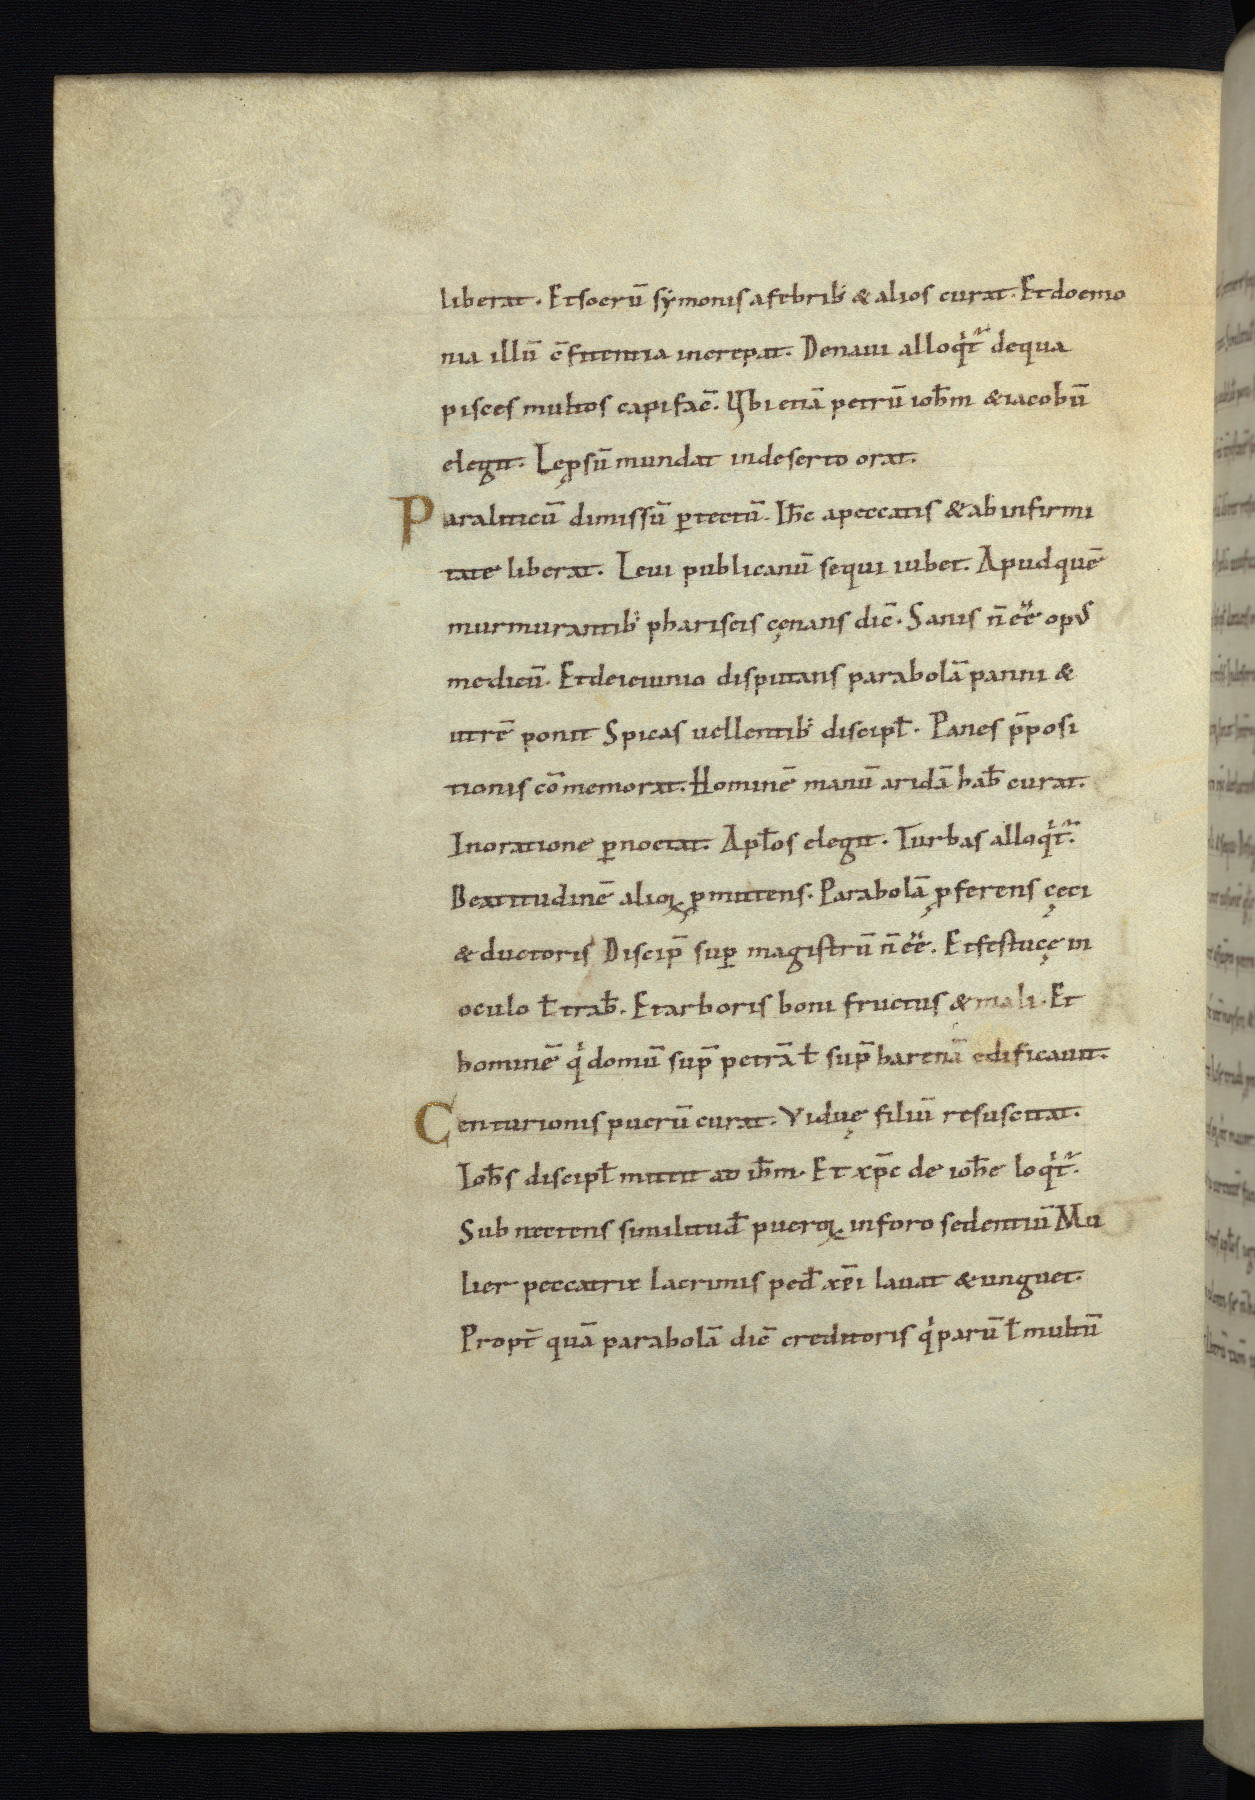 liberat. Et socrū sẏmonis a febrib; & alios curat. Et doemo
nia illū c̄fitentia increpat. De naui alloqͥt᷑ de qua
pisces multos capi fac̄. Ubi etiā petrū ioh̄m & iacobū
elegit. Lęprosū mundat in deserto orat.
Paraliticū dimissū ꝑ tectū. Ih̄c a peccatis & ab infirmi
tate liberat. Leui publicanū sequi iubet. Apud quē
murmurantib; phariseis cęnans dic̄. Sanis n̄ eē̄ opus
medicū. Et de ieiunio disputans parabolā panni &
utrē ponit Spicas uellentib; discipł. Panes p̄posi
tionis cōmemorat. Hominē manū aridā hab̄ curat.
In oratione ꝑnoctat. Apłos elegit. Turbas alloqͥt᷑.
Beatitudinē alioꝝ ꝓmittens. Parabolā ꝓferens cęci
& ductoris Discip̄ suꝑ magistrū n̄ eē̄. Et festucę in
oculo ł trab̄. Et arboris boni fructus & mali. Et
hominē qͥ domū sup̄ petrā ł sup̄ harenā edificauit.
Centurionis puerū curat. Viduę filiū resuscitat.
Ioh̄s discipł mittit ad ih̄m. Et xp̄c de ioh̄e loqͥt᷑.
Subnectens similitud̄ pueroꝝ in foro sedentiū Mu
lier peccatrix lacrimis ped̄ xp̄i lauat & unguet.
Propt̄ quā parabolā dic̄ creditoris qͥ parū ł multū